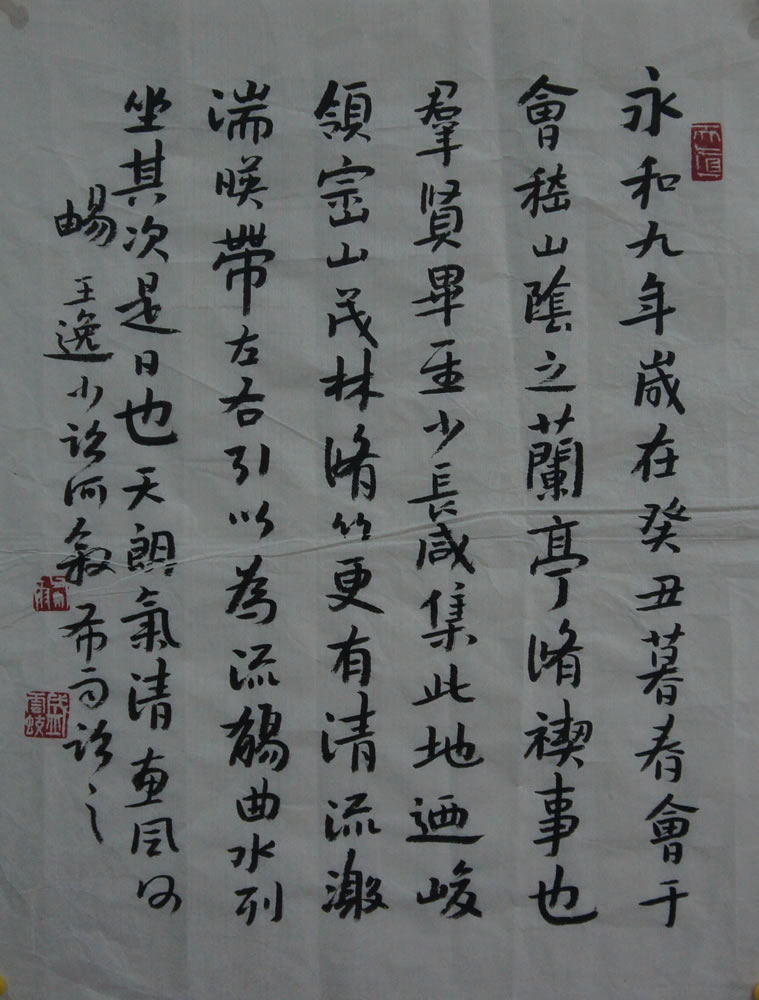 永和九年歲在癸丑暮春會于
會嵇山陰之蘭亭脩禊事也
羣賢畢至少長咸集此地迺峻
領崈山茂林脩竹更有清流激
湍暎帶左右引以為流觴曲水列
坐其次是日也天朗氣清恵風和
暢 王逸少 敘